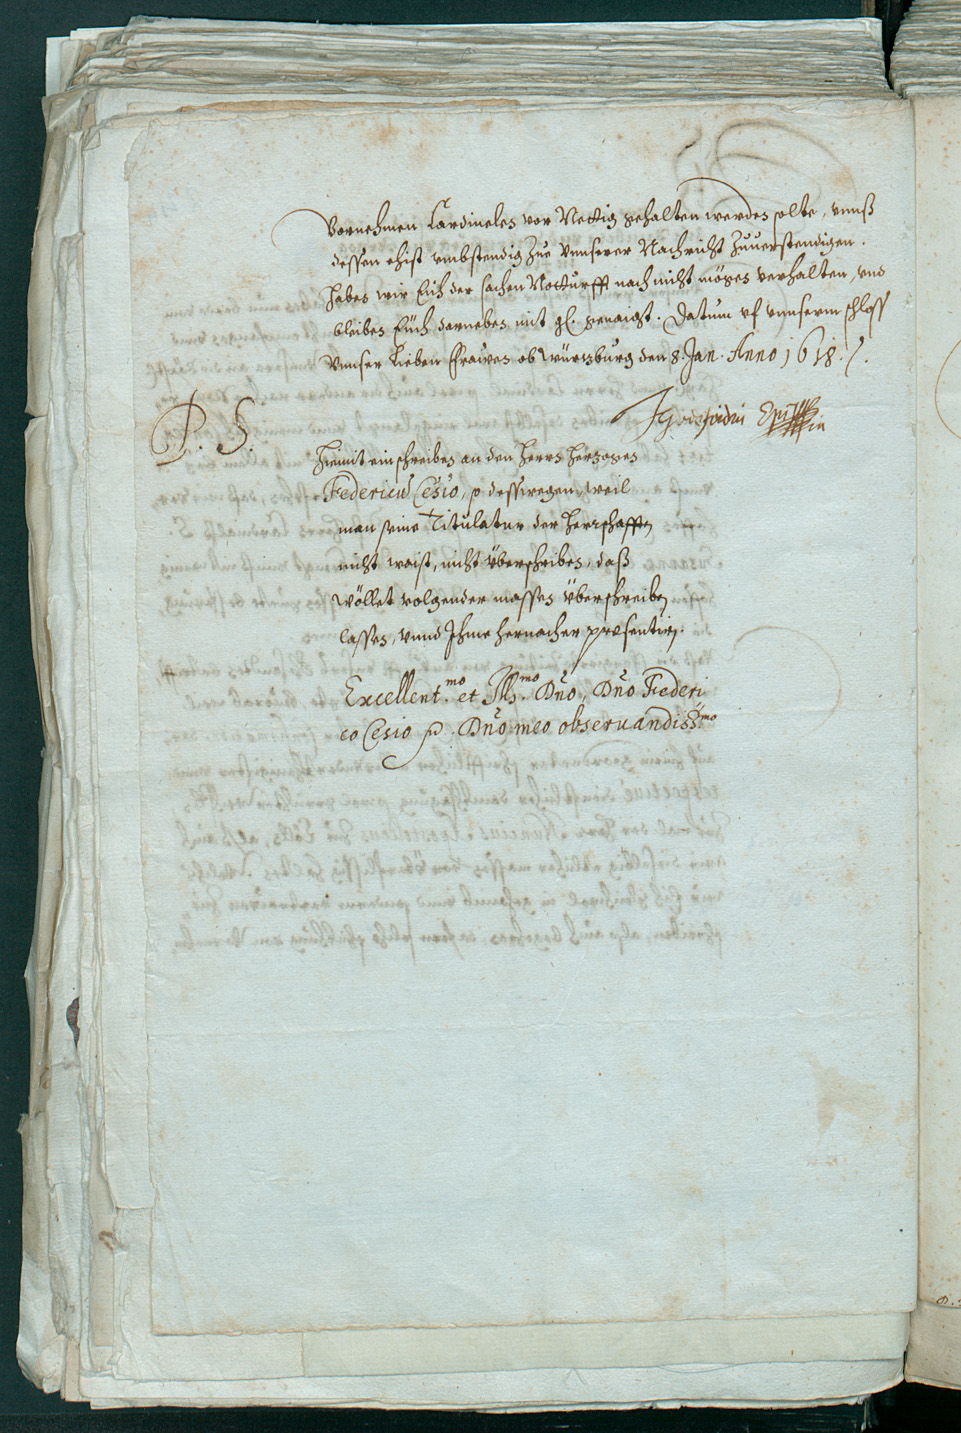 Vornehmen Cardineles vor Nöttig gehalten werden solte, vnnß
dessen ehist vmbstendig zue vnnserer Nachricht zuuerstendigen.
haben wir Euch der sachen Notturfft nach nicht mögen verhalten, vnd
bleiben Euch darneben mit gl. genaigt. Datum vf vnnserm schloss
Vnnser Lieben Frawen ob Würtzburg den 8. Jan. Anno 1618.
P. S.
Hiemit ein schreiben an den Herrn Hertzogen
Federicu Cesio, so desswegen, weil
man seine Titulatur der Herrschafften
nicht waist, nicht überschriben, daß
wöllet volgender massen überschreiben
lassen, vnnd Ihme hernacher præsentirn.
Excellent.mo et Ill.mo Dño, Dño Federi
co Cesio p. Dño meo obseruandiss.mo